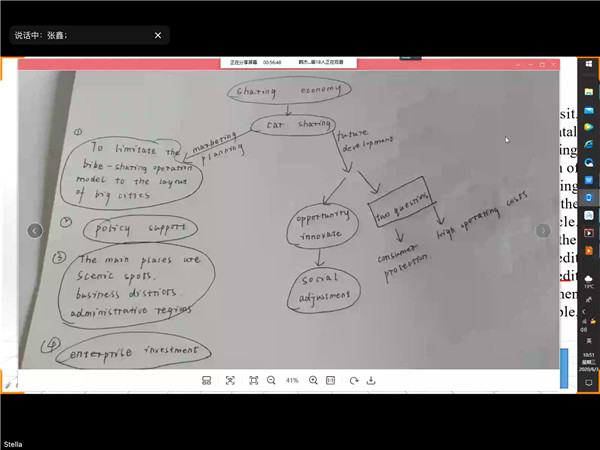 说话中: 张鑫;
正在分享屏幕
00:56:48
sharing economy
car sharing
marketing
planning
future
development
①
To limitate the
bike-sharing operation
model to the layout
of big cities
②
policy support
③
The main places are
scenic spots,
business districts,
administrative regions
④
enterprise investment
opportunity
innovate
social
adjustment
two questions
consumer
protection
high operating costs
41%
1:1
sit.
tal
ing
of
ing
the
cle,
the
edit
edit
men
ble,
19℃
英
10:51
星期二
2020/6/
Stella